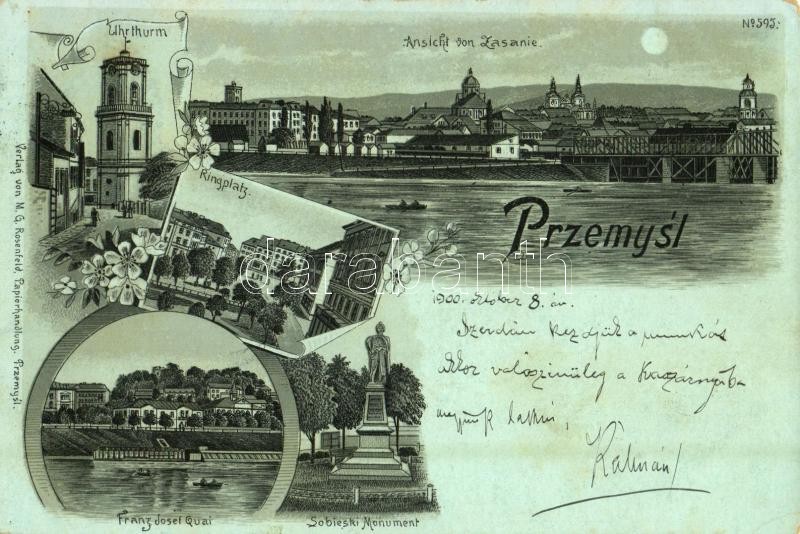 Uhrthurm
Ansicht von Zasanie.
No 595.
Ringplatz.
Przemyśl
darabanth
Verlag von M. G. Rosenfeld, Papierhandlung. Przemyśl.
1900. október 8. án.
Szerdán kezdjük a munkát
akkor valószinüleg a Kaszárnyába
megyünk lakni,
Kálmán
Franz Josef Quai
Sobieski Monument